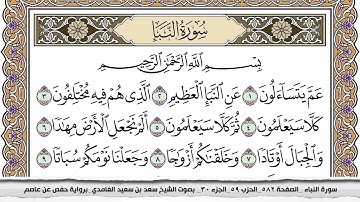 سُورَةُ النَّبَإِ
بِسْمِ اللَّهِ الرَّحْمَٰنِ الرَّحِيمِ
عَمَّ يَتَسَاءَلُونَ ١ عَنِ النَّبَإِ الْعَظِيمِ ٢ الَّذِي هُمْ فِيهِ مُخْتَلِفُونَ ٣
كَلَّا سَيَعْلَمُونَ ٤ ثُمَّ كَلَّا سَيَعْلَمُونَ ٥ أَلَمْ نَجْعَلِ الْأَرْضَ مِهَٰدًا ٦
وَالْجِبَالَ أَوْتَادًا ٧ وَخَلَقْنَٰكُمْ أَزْوَٰجًا ٨ وَجَعَلْنَا نَوْمَكُمْ سُبَاتًا ٩
سورة النباء _الصفحة ٥٨٢_الحزب ٥٩_الجزء ٣٠_ بصوت الشيخ سعد بن سعيد الغامدي_برواية حفص عن عاصم